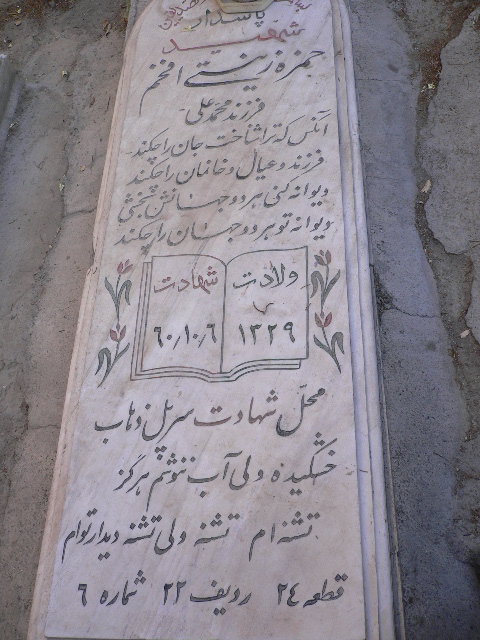 پاسدار
شهید
حمزه زینتے افخم
فرزند محمدعلی
آنکس که ترا شناخت جان را چکند
فرزند و عیال و خانمان را چکند
دیوانه کنی هر دو جهانش بخشی
دیوانه تو هر دو جهان را چکند
ولادت
۱۳۲۹
شهادت
۶۰٫۱۰٫۶
محل شهادت سرپل ذهاب
خشکیده ولی آب ننوشم هرگز
تشنه ام تشنه ولی تشنه دیدار توام
قطعه ۲۴ ردیف ۲۲ شماره ۶